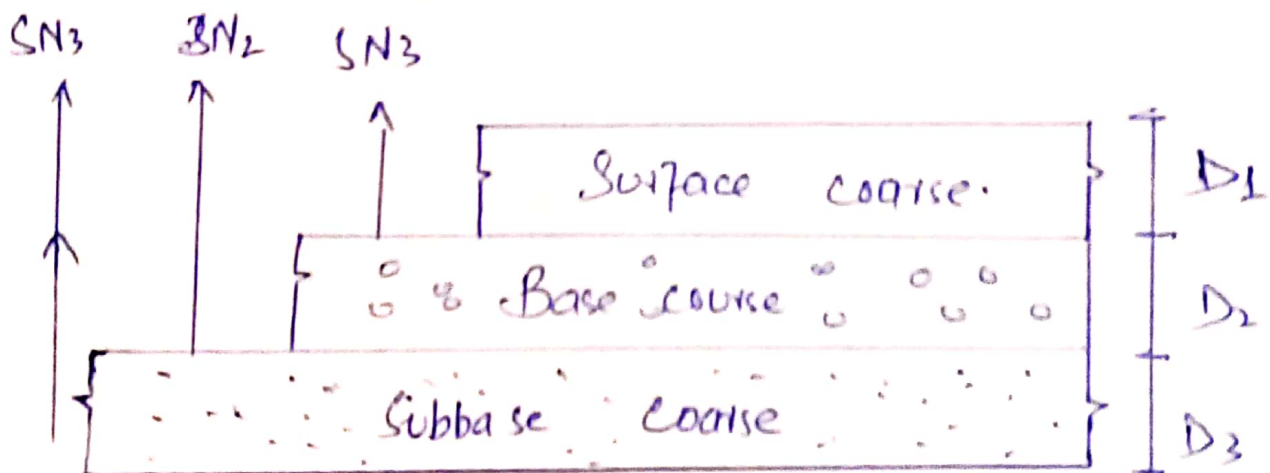 SN3 SN2 SN3
Surface coarse.
D1
Base course
D2
Subbase coarse
D3